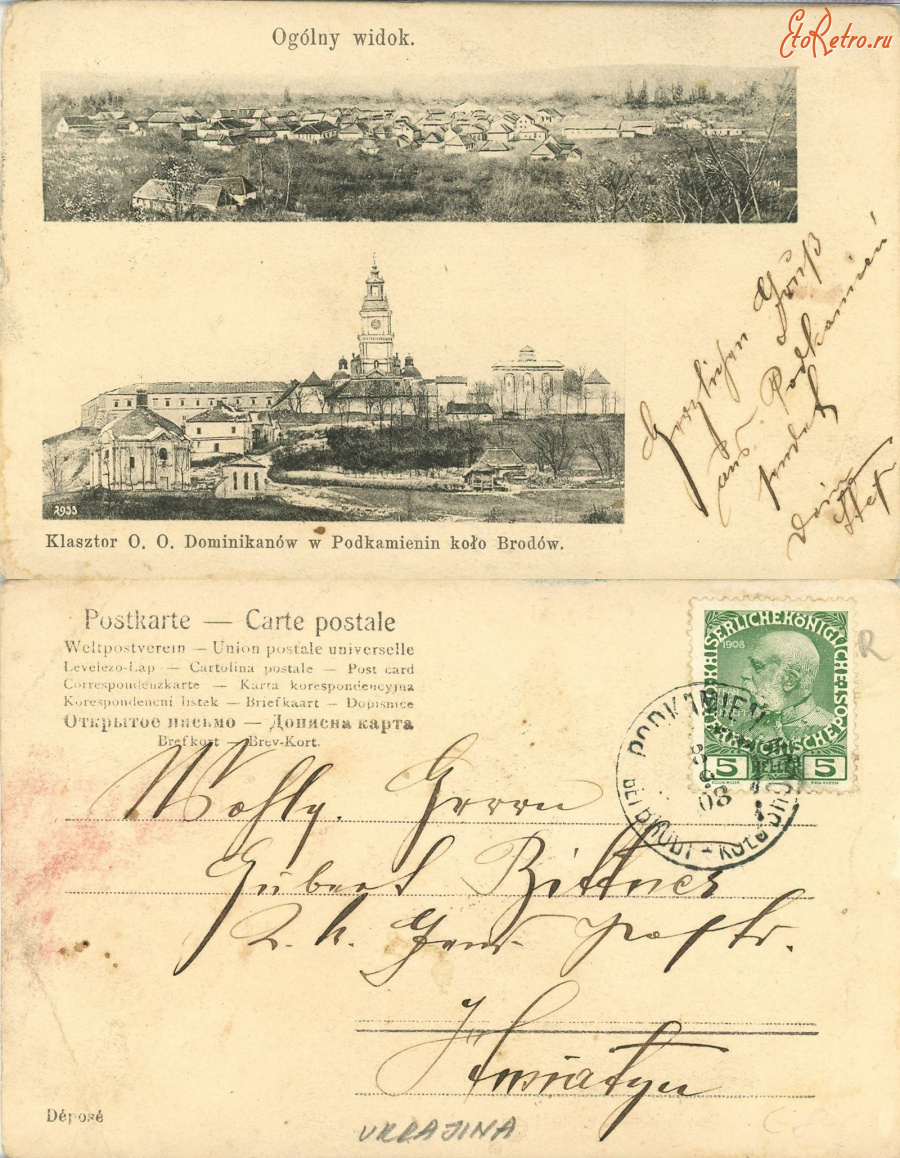 EtoRetro.ru
Ogólny widok.
Herzlichen Gruß
aus Podkamień
sendet
Dein
2933
Klasztor O. O. Dominikanów w Podkamienin koło Brodów.
Postkarte — Carte postale
Weltpostverein — Union postale universelle
Levelezo-Lap — Cartolina postale — Post card
Correspondenzkarte — Karta korespondencyjna
Korespondencni listek — Briefkaart — Dopisnice
Открытое письмо — Дописна карта
Brefkort — Brev-Kort.
KAISERLICHE KÖNIGLICHE ÖSTERREICHISCHE POST
1908
5 HELLER 5
PODKAMIEŃ
8 9 08
BEI BRODY - KOŁO
R
Wohlg. Herrn
Hubert Bittner
k. k.
in
Sniatyn
Déposé
UKRAJINA